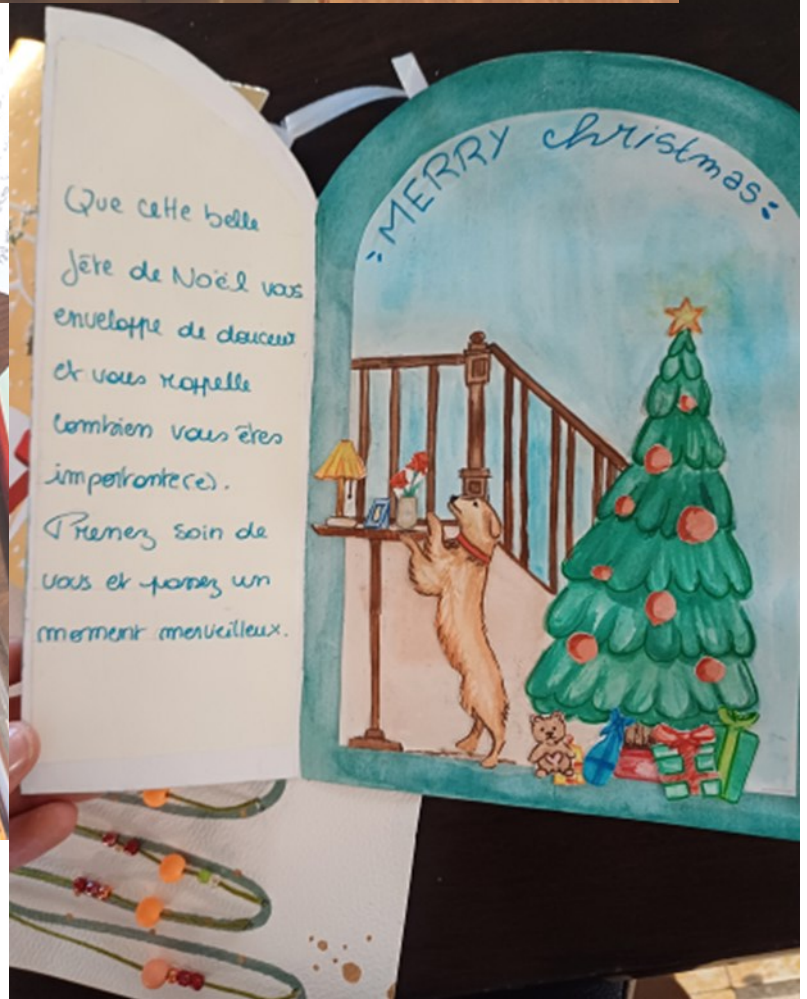 Que cette belle
fête de Noël vous
enveloppe de douceur
et vous rappelle
combien vous êtes
important(e).
Prenez soin de
vous et passez un
moment merveilleux.
MERRY christmas